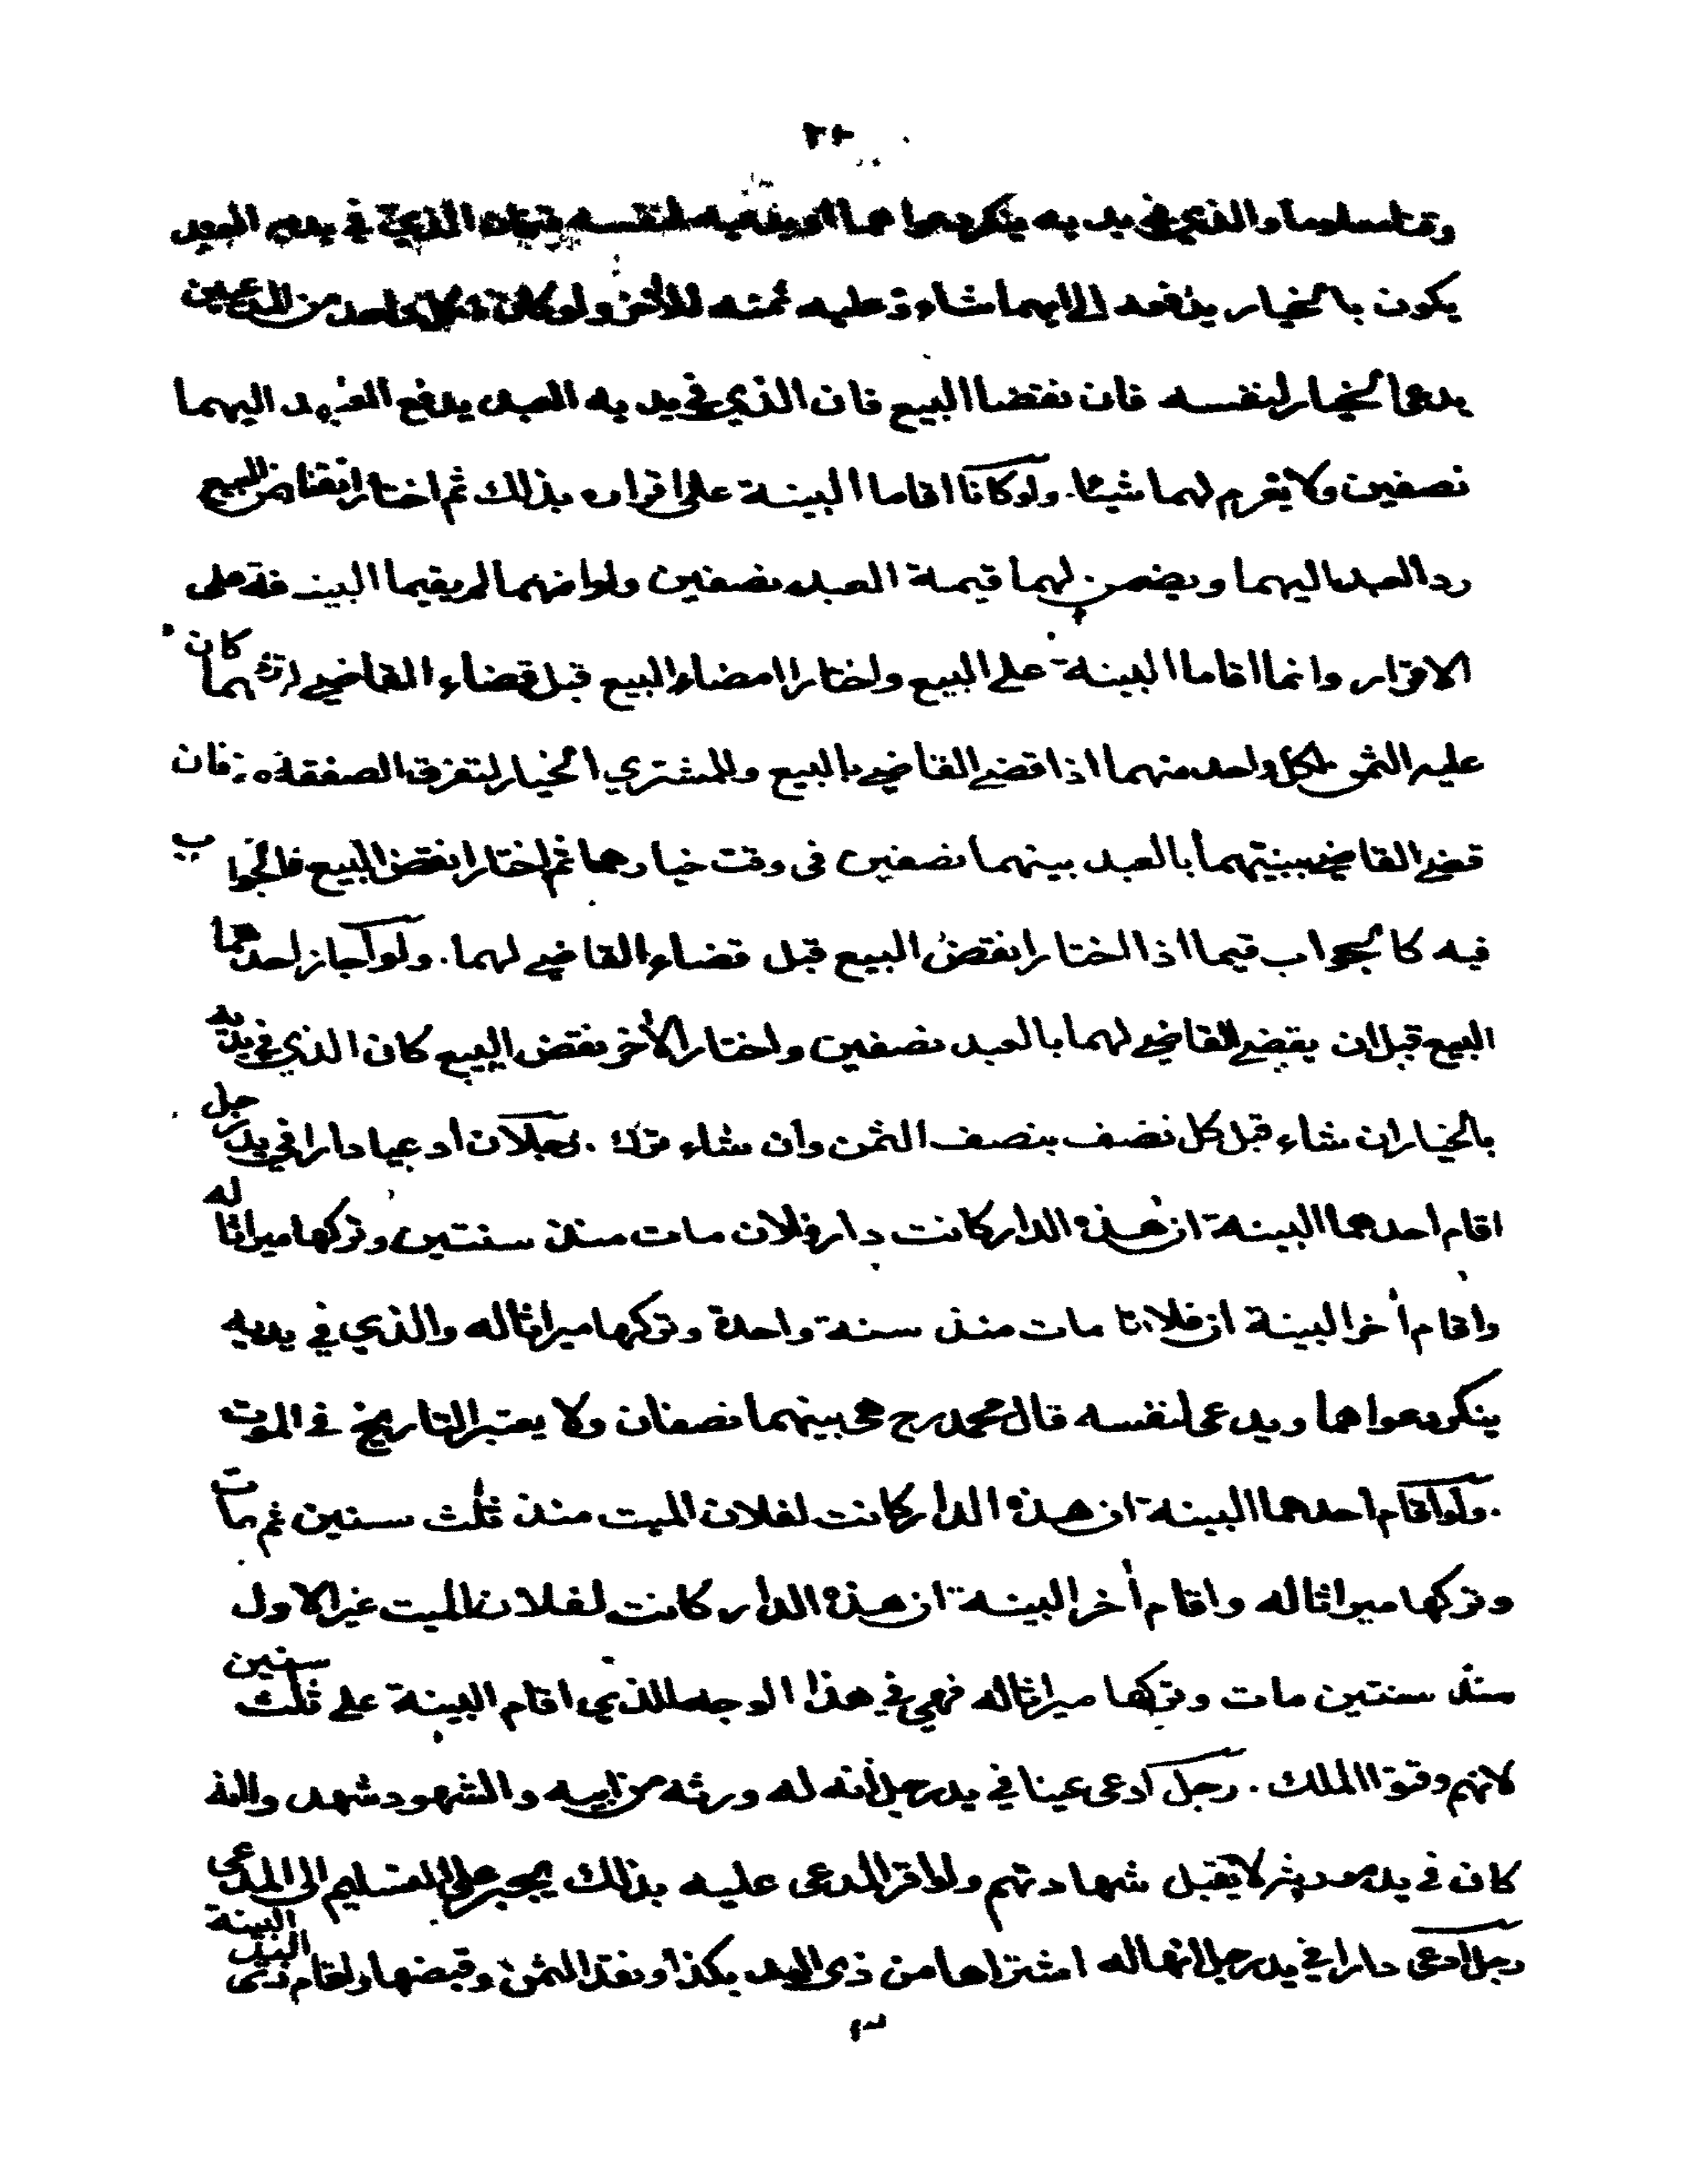 وقتا معلوما والذي في يديه ينكر دعواهما او يدعيه لنفسه فان الذي في يديه العبد
يكون بالخيار يدفعه الى ايهما شاء وعليه ثمنه للأخر ولو كان كل واحد من المدعيين
يدعى الخيار لنفسه فان نقضا البيع فان الذي في يديه العبد يدفع العبد اليهما
نصفين ولا يغرم لهما شيئا. ولو كانا اقاما البينة على اقراره بذلك ثم اختارا نقض البيع
رد العبد اليهما ويضمن لهما قيمة العبد نصفين ولو انهما لم يقيما البينة على
الاقرار وانما اقاما البينة على البيع واختارا امضاء البيع قبل قضاء القاضي كان
عليه الثمن لكل واحد منهما اذا قضى القاضي بالبيع وللمشتري الخيار لتفرق الصفقة فان
قضى القاضي ببينتهما بالعبد بينهما نصفين فى وقت خيارهما ثم اختارا نقض البيع فالجواب
فيه كالجواب فيما اذا اختارا نقض البيع قبل قضاء القاضي لهما. ولو أجاز احدهما
البيع قبل ان يقضي القاضي لهما بالعبد نصفين واختار الأخر نقض البيع كان الذي في يديه
بالخيار ان شاء قبل كل نصف بنصف الثمن وان شاء ترك. رجلان ادعيا دارا في يد رجل
اقام احدهما البينة ان هذه الدار كانت دار فلان مات منذ سنتين وتركها ميراثا له
واقام أخر البينة ان فلانا مات منذ سنة واحدة وتركها ميراثا له والذي في يديه
ينكر دعواهما ويدعى لنفسه قال محمد رح هى بينهما نصفان ولا يعتبر التاريخ في الموت
. ولو اقام احدهما البينة ان هذه الدار كانت لفلان الميت منذ ثلث سنين ثم مات
وتركها ميراثا له واقام أخر البينة ان هذه الدار كانت لفلان الميت غير الاول
منذ سنتين مات وتركها ميراثا له فهي في هذا الوجه للذي اقام البينة على ثلث سنين
لانهم وقتوا الملك. رجل ادعى عينا في يد رجل أنه له ورثه من ابيه والشهود شهدوا انه
كان في يد مورثه لا يقبل شهادتهم ولو اقر المدعى عليه بذلك يجبر على التسليم الى المدعى
رجل ادعى دارا في يد رجل انها له اشتراها من ذى اليد بكذا ونقد الثمن وقبضها واقام البينة